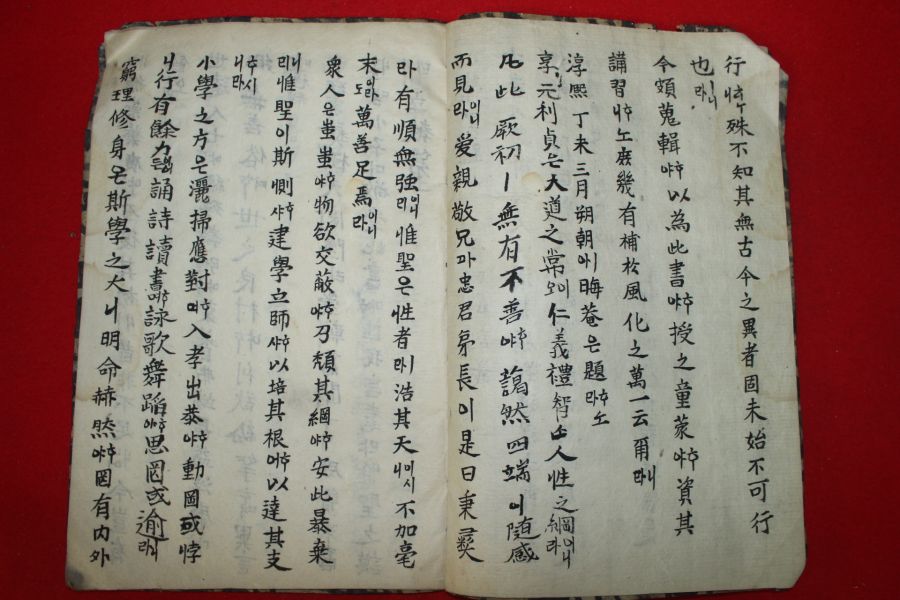 行ᄒᆞ야殊不知其無古今之異者固未始不可行
也라니
今頗蒐輯ᄒᆞ야以為此書ᄒᆞ야授之童蒙ᄒᆞ야資其
講習ᄒᆞ노庶幾有補於風化之萬一云爾라니
淳熙丁未三月朔朝애晦菴은題ᄒᆞ노라
享元利貞은大道之常이오仁義禮智人性之綱이니라
凡此厥初ㅣ無有不善ᄒᆞ야藹然四端이隨感
而見이니라愛親敬兄과忠君弟長이是曰秉彛
라有順無強이니라惟聖은性者라浩其天이시니不加毫
末이라도萬善足焉이니라
衆人은蚩蚩ᄒᆞ야物欲交蔽ᄒᆞ야乃頹其綱ᄒᆞ야安此暴棄
니라惟聖이斯惻ᄒᆞ샤建學立師ᄒᆞ샤以培其根ᄒᆞ며以達其支
ᄒᆞ시니라
小學之方은灑掃應對ᄒᆞ며入孝出恭ᄒᆞ야動罔或悖
니行有餘力이어든誦詩讀書ᄒᆞ며詠歌舞蹈ᄒᆞ야思罔或逾라니
窮理修身은斯學之大니明命赫然ᄒᆞ야罔有內外